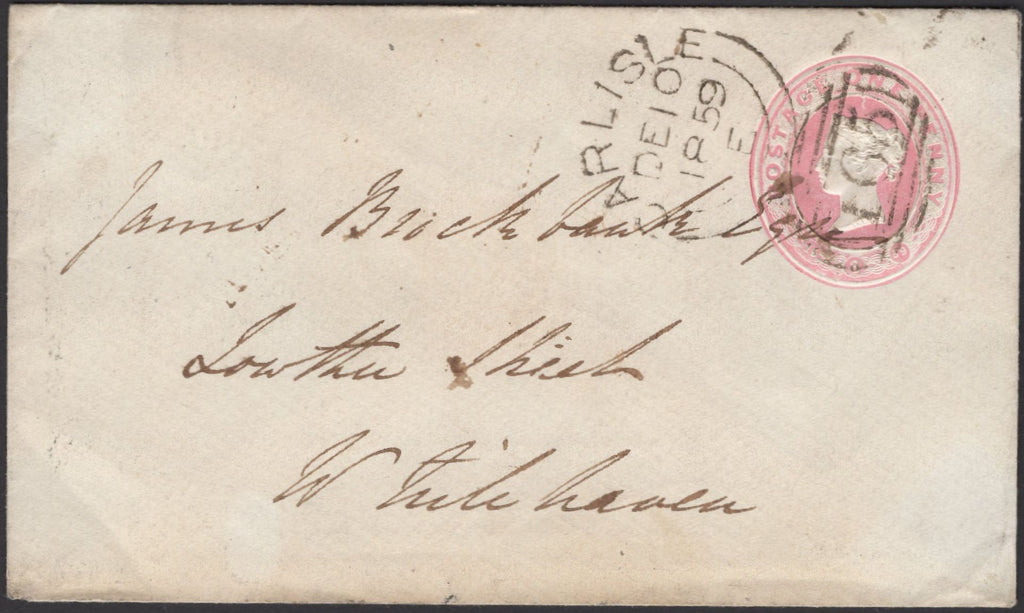 CARLISLE
DE 10
1859
E
POSTAGE ONE PENNY
165
James Brockbank Esqre
Lowther Street
Whitehaven